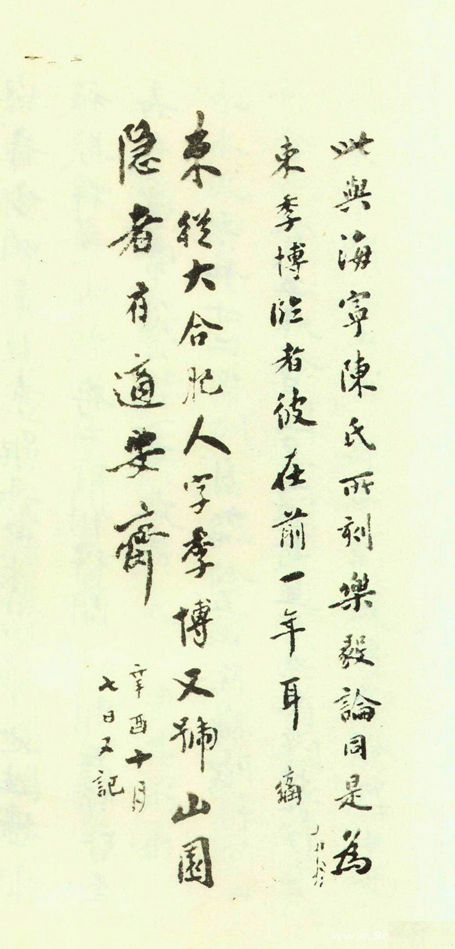 此與海寧陳氏所刻樂毅論同是為
束季博臨者彼在前一年耳
束從大合肥人字季博又號山園
隱者有適安齋
辛酉十月
七日又記